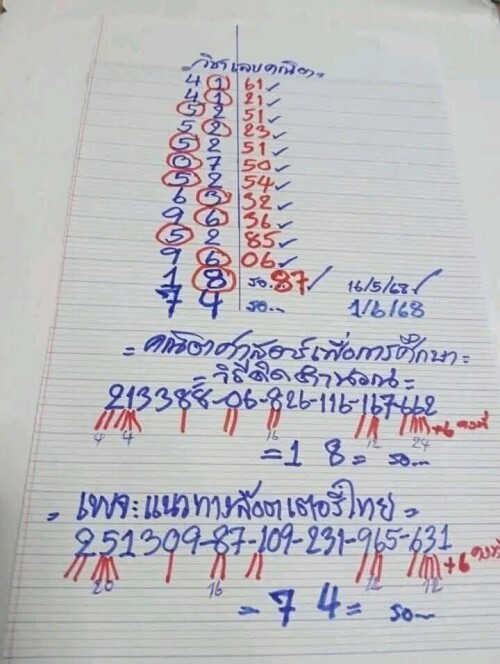 วิชาเลขคณิต=
4 1 61✓
4 1 21✓
5 2 51✓
5 2 23✓
5 2 51✓
0 7 50✓
5 2 54✓
6 3 32✓
9 6 36✓
5 2 85✓
9 6 06✓
1 8 รอ.87✓ 16/5/68✓
7 4 รอ... 1/6/68
=คณิตศาสตร์เพื่อการศึกษา=
=วิธีคิดคำนวณ=
213388-06-826-116-167-662
4 4 16 12 24 +6 คงที่
=1 8= รอ...
=เพจ:แนวทางล๊อตเตอรี่ไทย=
251309-87-109-231-965-631
20 16 12 12 +6 คงที่
=7 4= รอ...